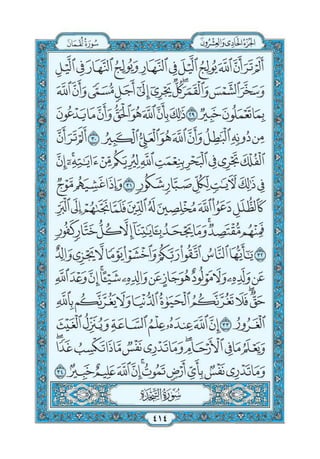 الجزء الحادي والعشرون سورة لقمان
أَلَمْ تَرَ أَنَّ ٱللَّهَ يُولِجُ ٱلَّيْلَ فِى ٱلنَّهَارِ وَيُولِجُ ٱلنَّهَارَ فِى ٱلَّيْلِ
وَسَخَّرَ ٱلشَّمْسَ وَٱلْقَمَرَ كُلٌّ يَجْرِىٓ إِلَىٰٓ أَجَلٍ مُّسَمًّى وَأَنَّ ٱللَّهَ
بِمَا تَعْمَلُونَ خَبِيرٌ ٢٩ ذَٰلِكَ بِأَنَّ ٱللَّهَ هُوَ ٱلْحَقُّ وَأَنَّ مَا يَدْعُونَ
مِن دُونِهِ ٱلْبَٰطِلُ وَأَنَّ ٱللَّهَ هُوَ ٱلْعَلِىُّ ٱلْكَبِيرُ ٣٠ أَلَمْ تَرَ أَنَّ
ٱلْفُلْكَ تَجْرِى فِى ٱلْبَحْرِ بِنِعْمَتِ ٱللَّهِ لِيُرِيَكُم مِّنْ ءَايَٰتِهِۦٓ إِنَّ
فِى ذَٰلِكَ لَءَايَٰتٍ لِّكُلِّ صَبَّارٍ شَكُورٍ ٣١ وَإِذَا غَشِيَهُم مَّوْجٌ
كَٱلظُّلَلِ دَعَوُا۟ ٱللَّهَ مُخْلِصِينَ لَهُ ٱلدِّينَ فَلَمَّا نَجَّىٰهُمْ إِلَى ٱلْبَرِّ
فَمِنْهُم مُّقْتَصِدٌ وَمَا يَجْحَدُ بِـَٔايَٰتِنَآ إِلَّا كُلُّ خَتَّارٍ كَفُورٍ
٣٢ يَٰٓأَيُّهَا ٱلنَّاسُ ٱتَّقُوا۟ رَبَّكُمْ وَٱخْشَوْا۟ يَوْمًا لَّا يَجْزِى وَالِدٌ
عَن وَلَدِهِۦ وَلَا مَوْلُودٌ هُوَ جَازٍ عَن وَالِدِهِۦ شَيْـًٔا إِنَّ وَعْدَ ٱللَّهِ
حَقٌّ فَلَا تَغُرَّنَّكُمُ ٱلْحَيَوٰةُ ٱلدُّنْيَا وَلَا يَغُرَّنَّكُم بِٱللَّهِ
ٱلْغَرُورُ ٣٣ إِنَّ ٱللَّهَ عِندَهُۥ عِلْمُ ٱلسَّاعَةِ وَيُنَزِّلُ ٱلْغَيْثَ
وَيَعْلَمُ مَا فِى ٱلْأَرْحَامِ وَمَا تَدْرِى نَفْسٌ مَّاذَا تَكْسِبُ غَدًا
وَمَا تَدْرِى نَفْسٌۢ بِأَىِّ أَرْضٍ تَمُوتُ إِنَّ ٱللَّهَ عَلِيمٌ خَبِيرٌۢ ٣٤
سُورَةُ السَّجْدَةِ
٤١٤